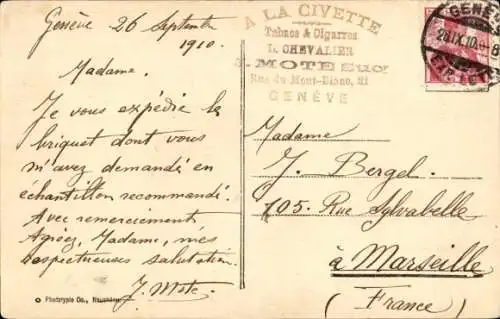 Genève 26 Septembre
1910.
Madame.
Je vous expédie le
briquet dont vous
m'avez demandé en
échantillon recommandé.
Avec remerciements
Agréez, Madame, mes
respectueuses salutation.
J. Mote.
Phototypie Co., Neuchâtel
A LA CIVETTE
Tabacs & Cigarres
L. CHEVALIER
J. MOTE Sucr
Rue du Mont-Blanc, 21
GENÈVE
GENÈVE
26.IX.10.
Madame
J. Bergel.
105. Rue Sylvabelle
à Marseille
(France)